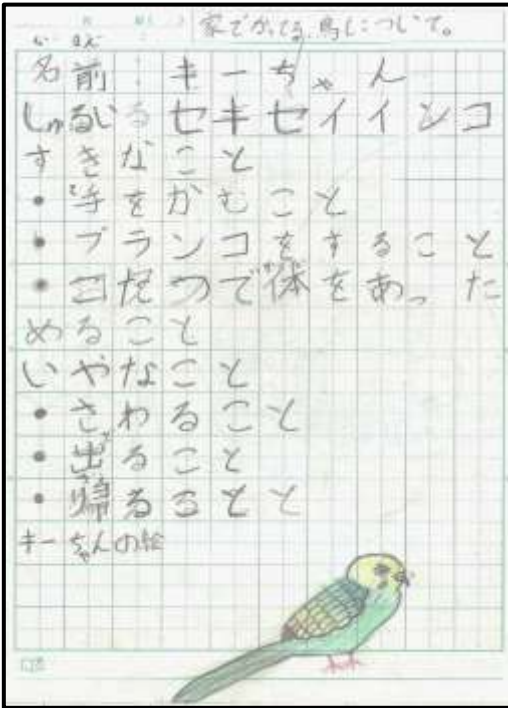 家でかってる鳥について。
名前:キーちゃん
しゅるい セキセイインコ
すきなこと
・手をかむこと
・ブランコをすること
・コたつで体をあった
めること
いやなこと
・さわること
・出ること
・帰ること
キーちゃんの絵